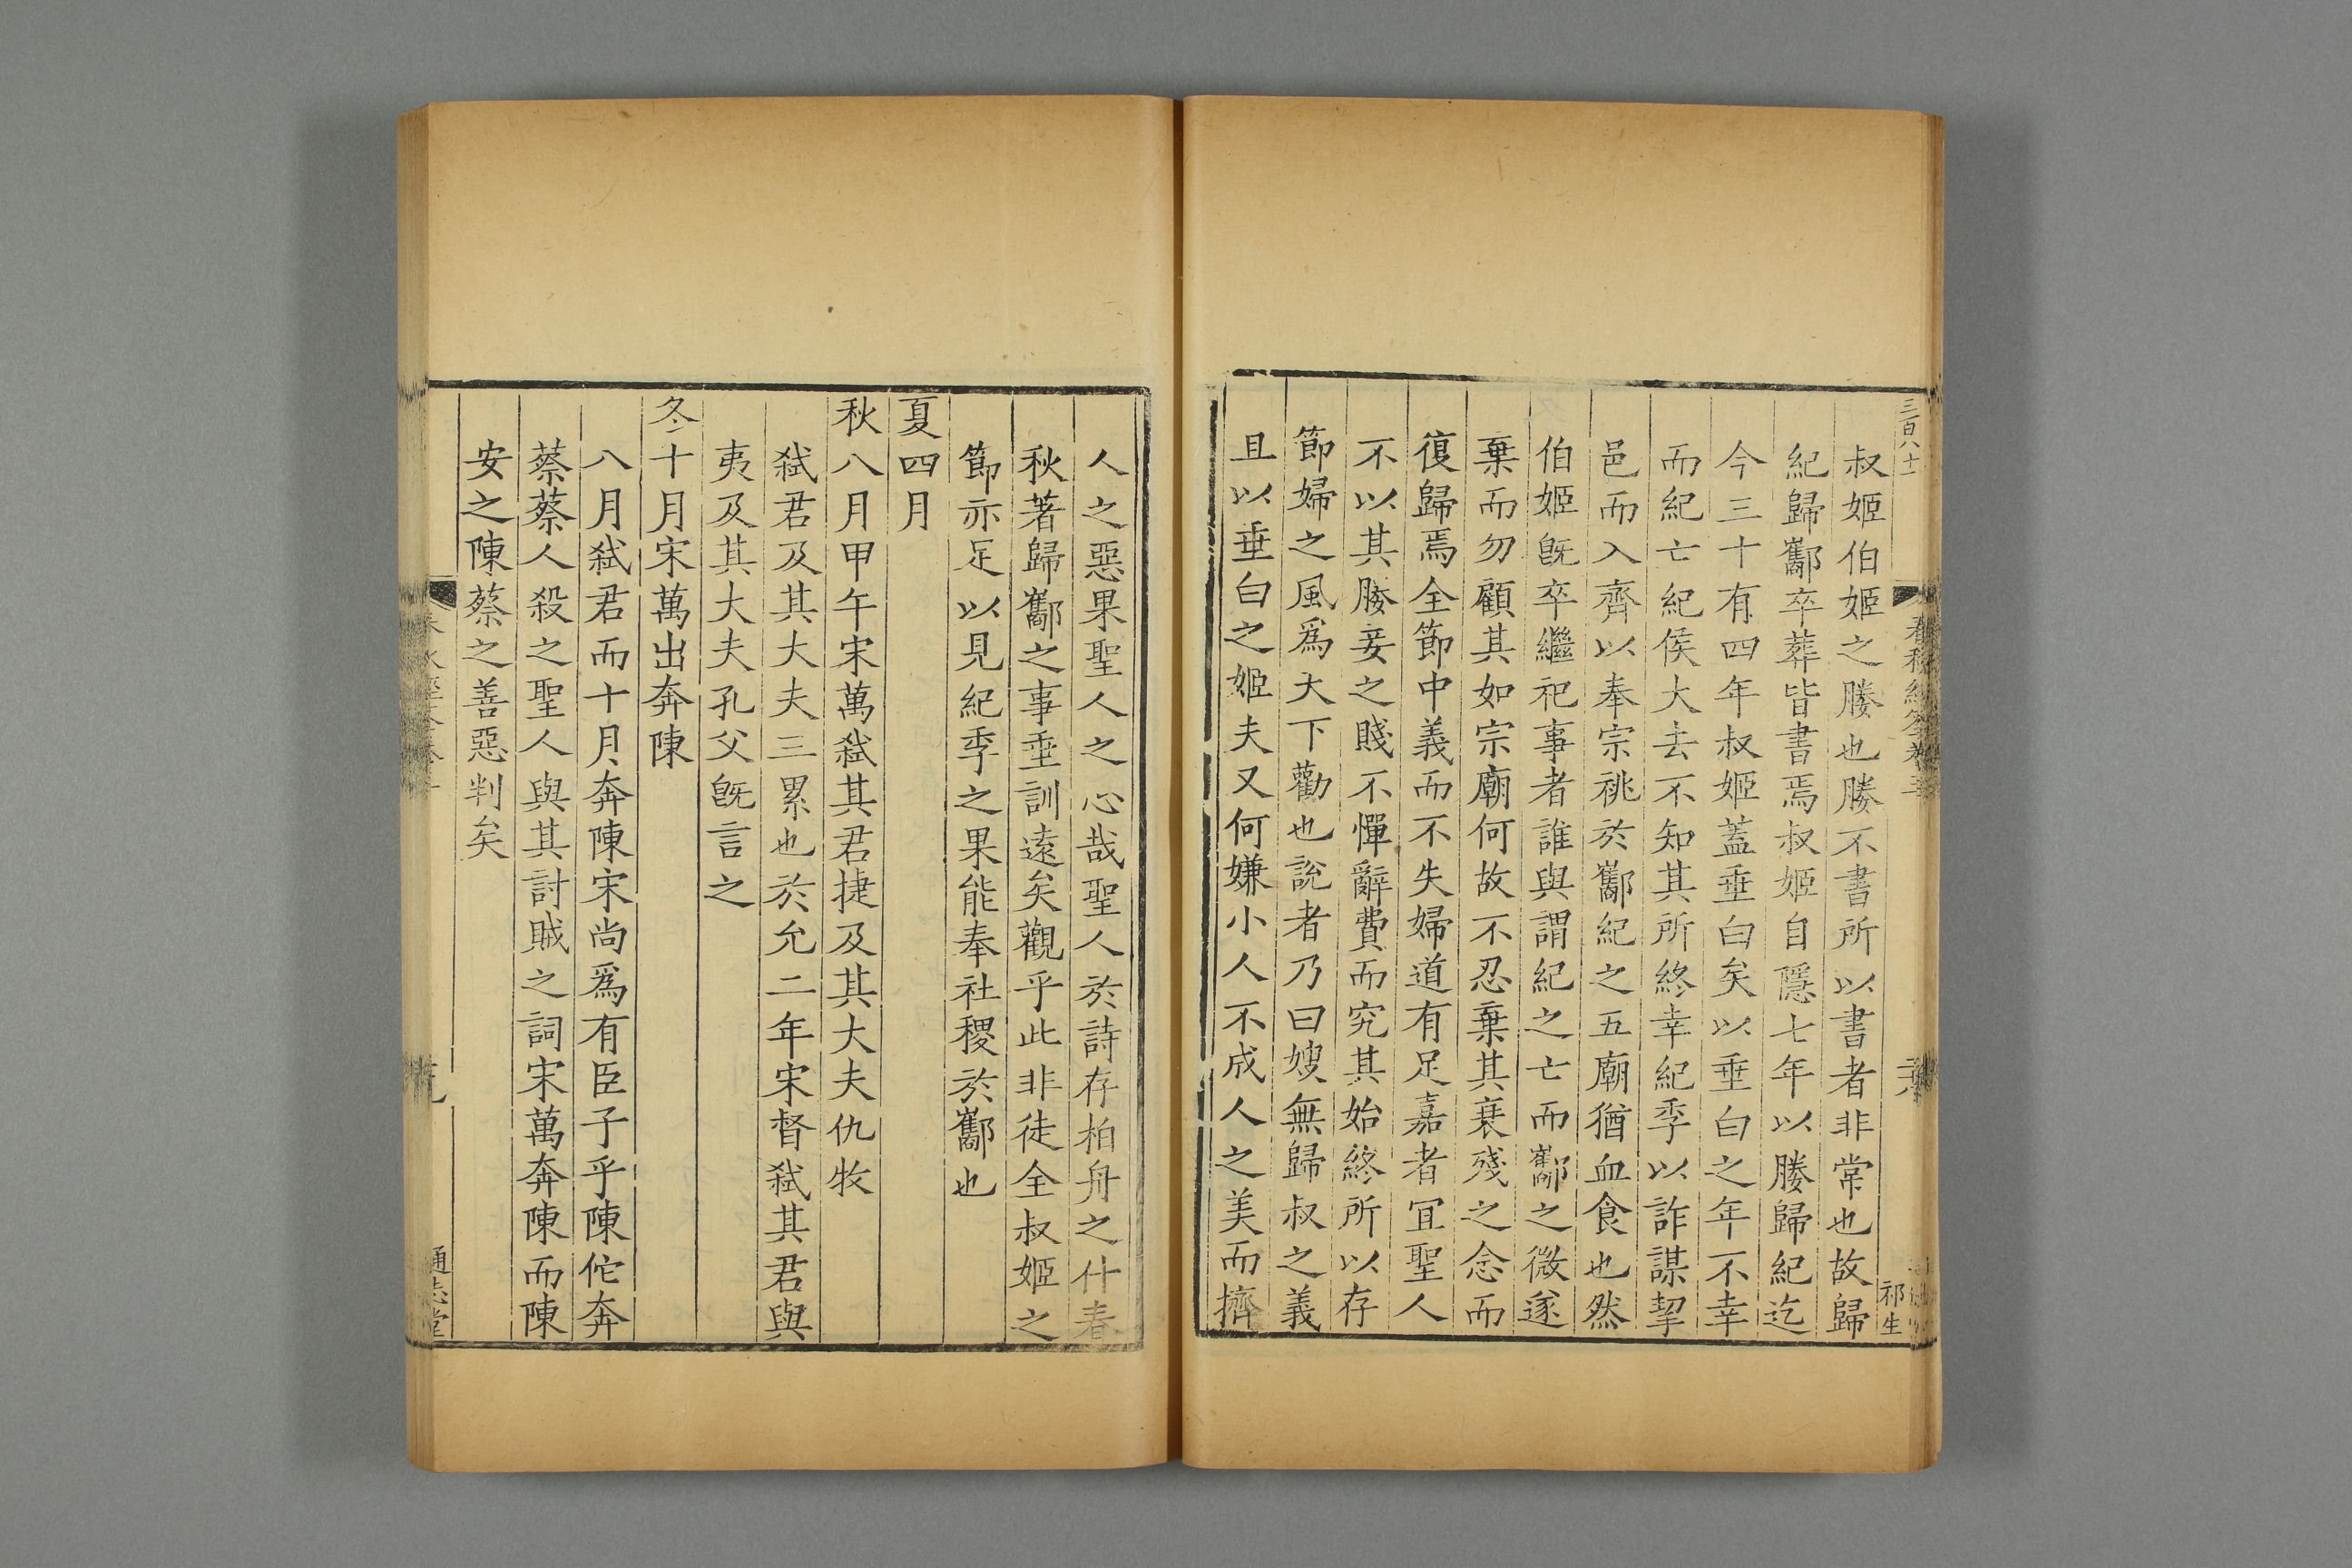 三百八十一
春秋經筌卷三
祁生
叔姬伯姬之媵也媵不書所以書者非常也故歸
紀歸酅卒葬皆書焉叔姬自隱七年以媵歸紀迄
今三十有四年叔姬蓋垂白矣以垂白之年不幸
而紀亡紀侯大去不知其所終幸紀季以詐謀挈
邑而入齊以奉宗祧於酅紀之五廟猶血食也然
伯姬旣卒繼祀事者誰與謂紀之亡而酅之微遂
棄而勿顧其如宗廟何故不忍棄其衰殘之念而
復歸焉全節中義而不失婦道有足嘉者冝聖人
不以其媵妾之賤不憚辭費而究其始終所以存
節婦之風爲大下勸也說者乃曰嫂無歸叔之義
且以垂白之姬夫又何嫌小人不成人之美而擠
人之惡果聖人之心哉聖人於詩存柏舟之什春
秋著歸酅之事垂訓遠矣觀乎此非徒全叔姬之
節亦足以見紀季之果能奉社稷於酅也
夏四月
秋八月甲午宋萬弒其君捷及其大夫仇牧
弒君及其大夫三累也於允二年宋督弒其君與
夷及其大夫孔父旣言之
冬十月宋萬出奔陳
八月弒君而十月奔陳宋尚爲有臣子乎陳佗奔
蔡蔡人殺之聖人與其討賊之詞宋萬奔陳而陳
安之陳蔡之善惡判矣
通志堂